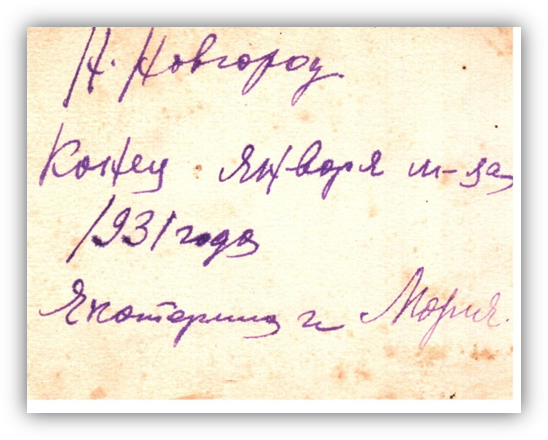 Н. Новгород.
Конец января м-ца
1931 года
Якатерина и Мария.